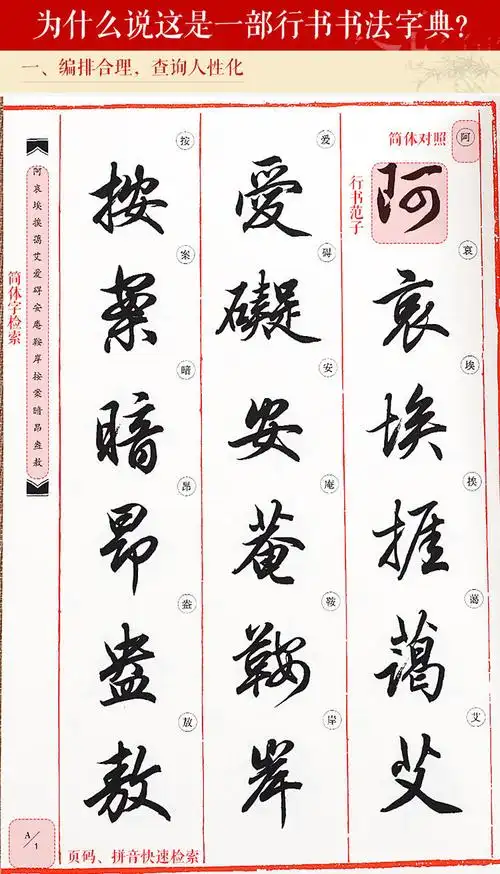 为什么说这是一部行书书法字典?
一、编排合理，查询人性化
简体对照
阿
行书范子
阿
哀
哀
埃
埃
挨
捱
蔼
藹
艾
艾
爱
愛
碍
礙
安
安
庵
菴
鞍
鞍
岸
岸
按
按
案
案
暗
暗
昂
昂
盎
盎
敖
敖
阿哀埃挨蔼艾爱碍安庵鞍岸按案暗昂盎敖
简体字检索
A/1
页码、拼音快速检索